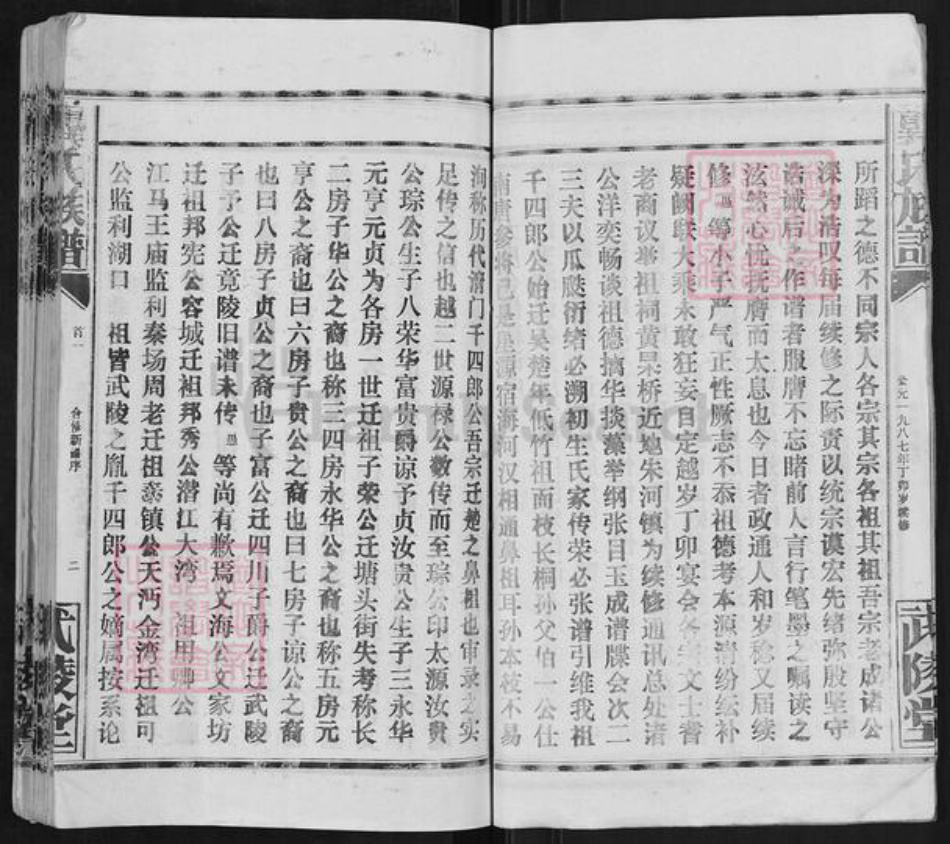 所蹈之德不同宗人各宗其宗各祖其祖吾宗老成诸公
深为浩叹每届续修之际责以统宗谟宏先绪弥殷坚守
浩诫后之作谱者服膺不忘睹前人言行笔墨之嘱读之
泫然心忧抚膺而太息也今日者政通人和岁稔又届续
修愚等小子严气正性厥志不忝祖德考本源清纷纭补
疑阙联大乘未敢狂妄自定越岁丁卯宴会各宗文士耆
老商议举祖祠黄杲桥近地朱河镇为续修通讯总处诸
公洋奕畅谈祖德摛华掞藻举纲张目玉成谱牒会次二
三夫以瓜瓞衍绪必溯初生氏家传荣必张谱引维我祖
千四郎公始迁吴楚年低竹祖而枝长桐孙父伯一公仕
南唐参将已是星源宿海河汉相通鼻祖耳孙本枝不易
洵称历代清门千四郎公吾宗迁楚之鼻祖也审录之实
足传之信也越二世源禄公数传而至琮公印太源汝贵
公琮公生子八荣华富贵爵谅予贞汝贵公生子三永华
元亨元贞为各房一世迁祖子荣公迁塘头街失考称长
二房子华公之裔也称三四房永华公之裔也称五房元
亨公之裔也曰六房子贵公之裔也曰七房子谅公之裔
也曰八房子贞公之裔也子富公迁四川子爵公迁武陵
子予公迁竟陵旧谱未传愚等尚有歉焉文海公文家坊
迁祖邦宪公容城迁祖邦秀公潜江大湾祖用卿公
江马王庙监利秦场周老迁祖
镇公天沔金湾迁祖可
公监利湖口 祖皆武陵之胤千四郎公之嫡属按系论
氏族谱
首一
合修新谱序
二
武陵堂
氏族谱
公元一九八七年丁卯岁续修
武陵堂